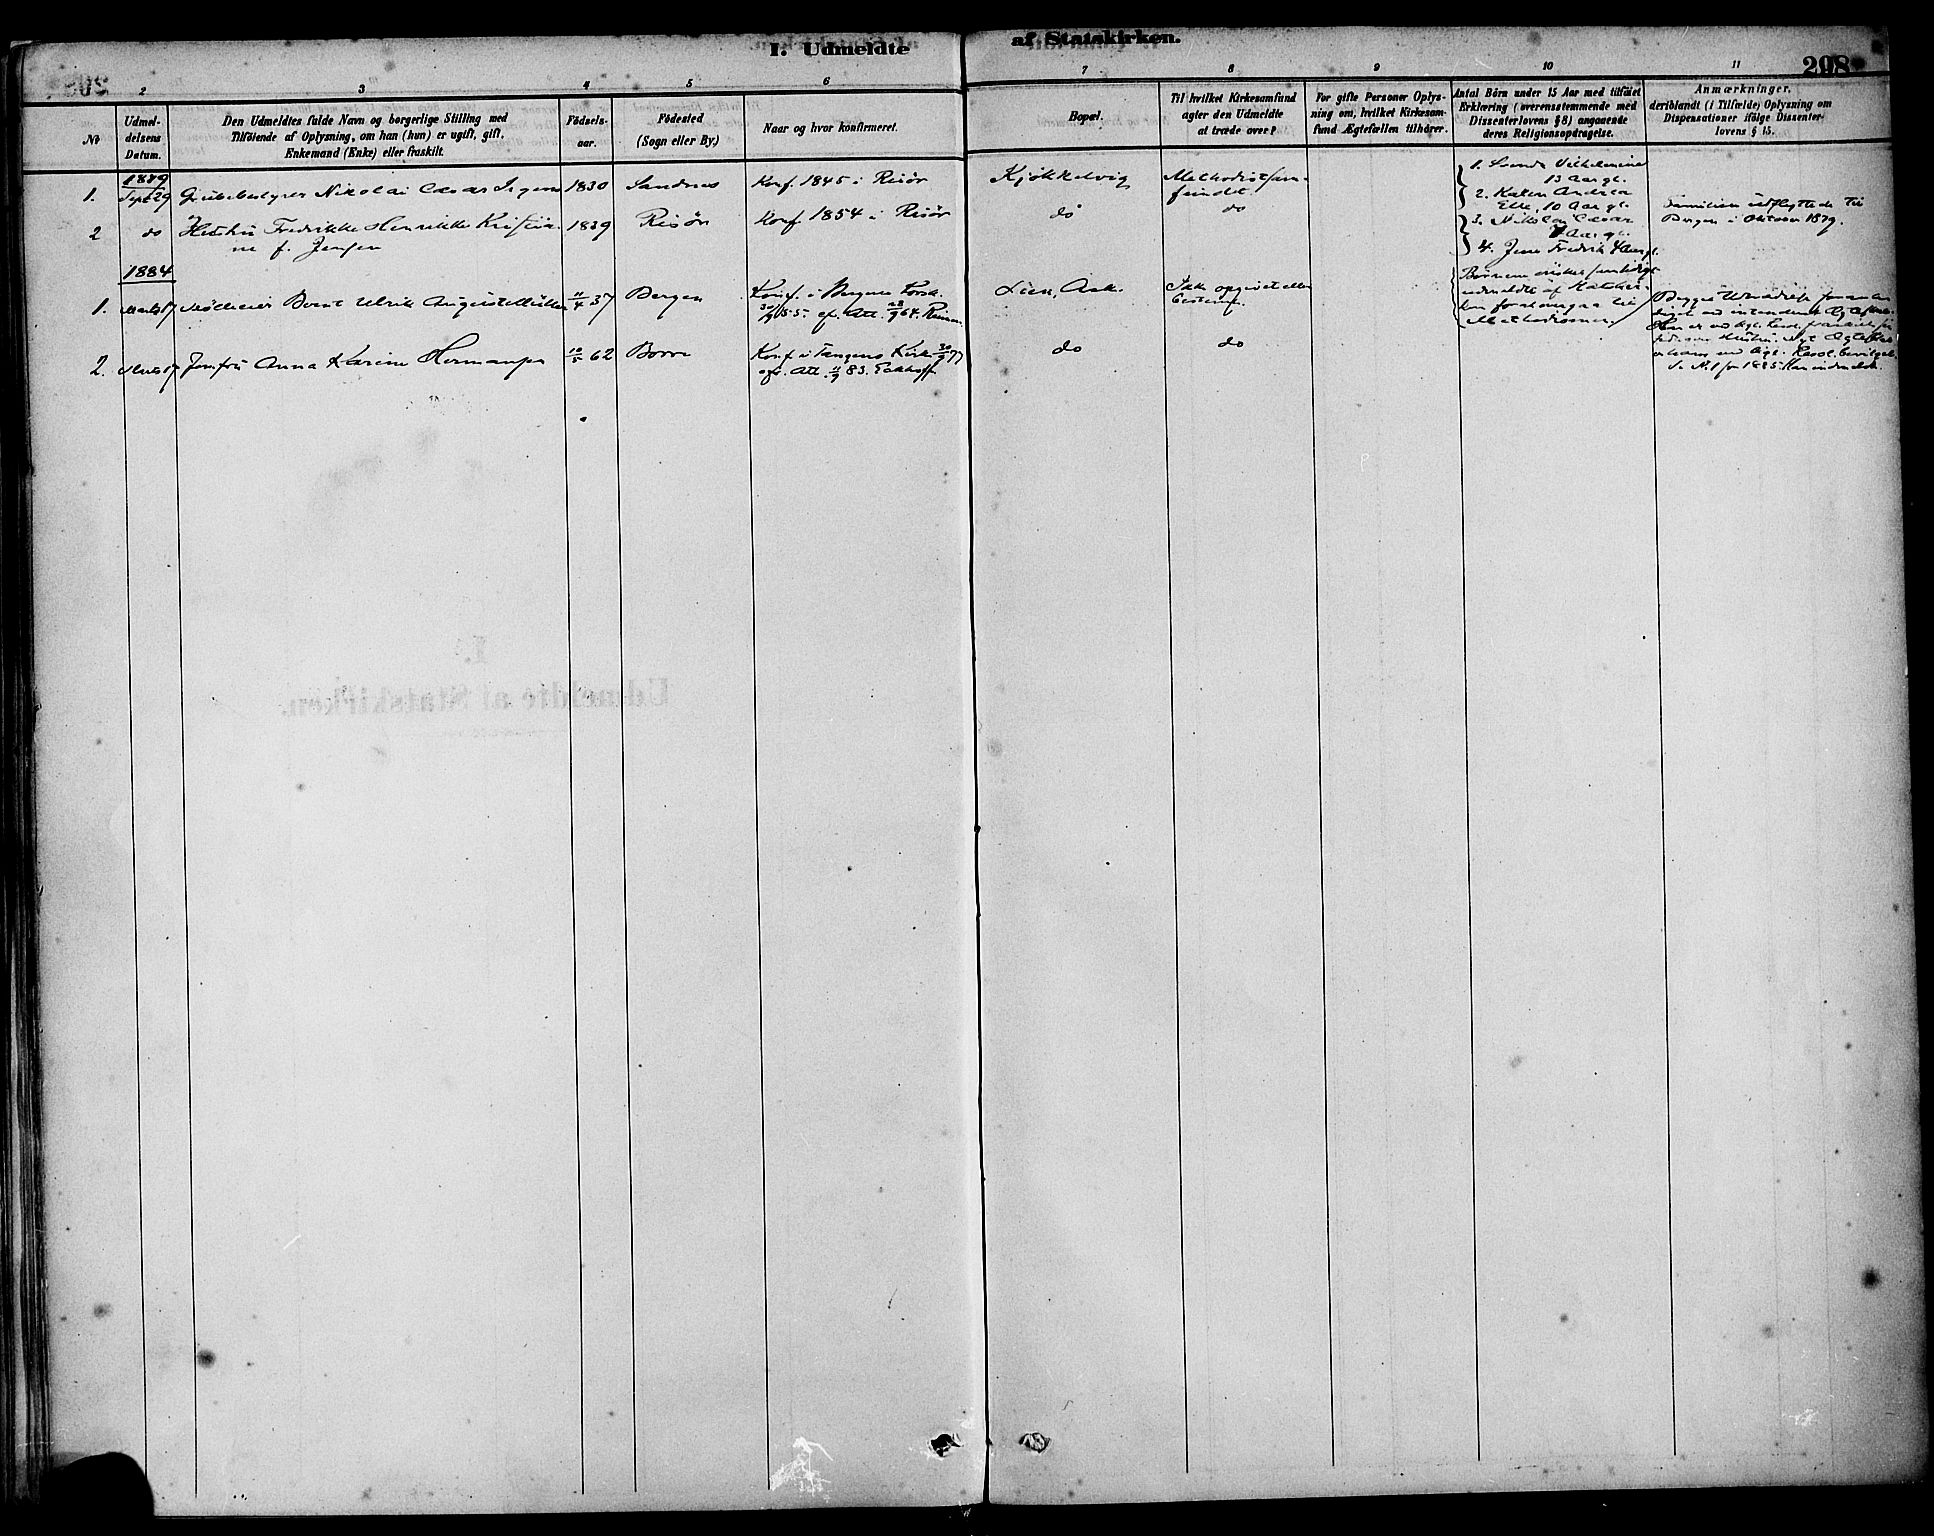 I. Udmeldte af Statskirken.
208
2 3 4 5 6 7 8 9 10 11
№
Udmel-
delsens
Datum.
Den Udmeldtes fulde Navn og borgerlige Stilling med
Tilföiende af Oplysning, om han (hun) er ugift, gift,
Enkemand (Enke) eller fraskilt.
Födsels-
aar.
Födested
(Sogn eller By.)
Naar og hvor konfirmeret.
Bopæl.
Til hvilket Kirkesamfund
agter den Udmeldte
at træde over?
For gifte Personer Oplys-
ning om, hvilket Kirkesam-
fund Ægtefællen tilhörer.
Antal Börn under 15 Aar med tilföiet
Erklæring (overensstemmende med
Dissenterlovens § 8) angaaende
deres Religionsopdragelse.
Anmærkninger,
deriblandt (i Tilfælde) Oplysning om
Dispensationer ifölge Dissenter-
lovens § 15.
1879
1. Sept 29 Grubebestyrer Nikolai Cæsar 1830 Sandnes Konf. 1845 i Risör Kjökkelvig Methodistsam-
fundet
1. Vilhelmine
13 Aar gl.
2. Karen Andrea
Elle, 10 Aar gl.
3. Nikolai Cæsar
7 Aar gl.
4. Jens Fredrik 4 Aar gl.
Familien udflyttede til
Bergen i Oktober 1879.
2 do Hustru Fredrikke Henrikke Kristia-
ne f. Jensen 1839 Risör Konf 1854 i Risör do do
1884
1. Marts 17 Bernt Ulrik August Müller 11/4 37 Bergen Konf. i Bergens Korsk.
55 cf. Att. 64. Lien, Ask. Ikke opgivet eller
bestemt.
Börnene önskes samtidigt
udmeldte af
for at overgaa til
Methodismen
2. Marts 17 Jomfru Anna Karine Hermansen 10/5 62 Borre Konf i Tangens Kirke 30/9 77
cfr. Att. 11/9 83. Eckhoff do do
Nyt
ved kgl. Resol. bevilget.
Se N. 1 for 1885.
I.
Udmeldte af Statskirken.